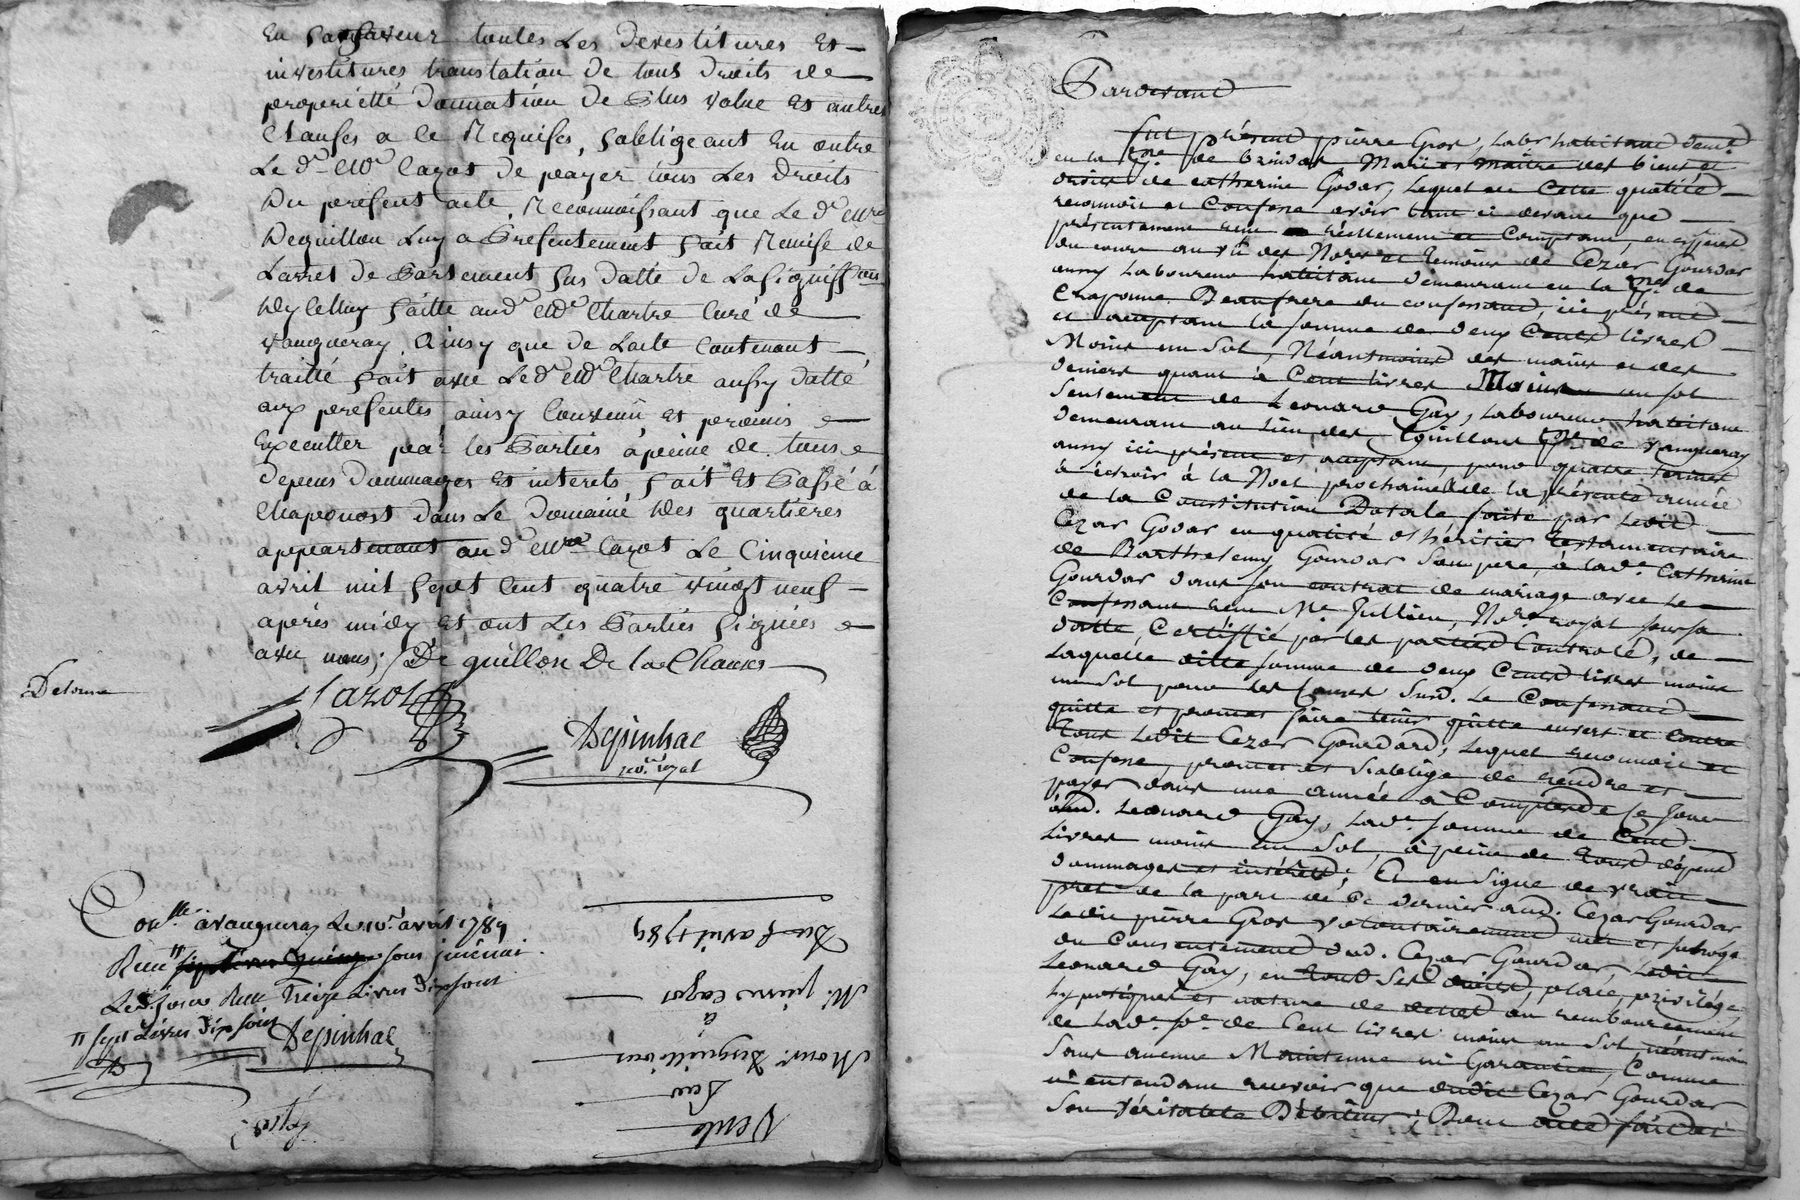 En sa faveur toutes Les devestitures Et
investitures translation de tous droits de
proprietté donnation de Plus value Et autres
Clauses a ce Requises, sobligeant En outre
Le dr Mre Cazot de payer tous Les droits
Du present acte, Reconnoissant que Le dr Mre
Deguillon Luy a Presentement fait Remise de
Larret de Partement sus datté de La signiffon
D'yCelluy faitte aud. Mre Chartre Curé de
Vaugneray. Ainsy que de Lacte Contenant
traitté fait avec Le dr Mre Chartre aussy datté
aux presentes ainsy Convenu Et promis
Executter par les Parties à peine de tous
depens dommages Et interets, fait Et Passé à
Chaponost dans Le domaine Des quartières
appartenant aud. Mre Cazot Le Cinquieme
avril mil sept Cent quatre vingt neuf
après midy Et ont Les Parties signées
avec nous; De guillon De la Chaux
Cazot
Depinhac
nore royal
Conlle à Vaugneray Le 10 avril 1789
Receu sous
Led. Receu Treize Livres dix sous
sept Livres dix sous Depinhac
Du 5 avril 1789
Mr pierre Cazot
à
Mour Deguillion
Par
Vente
Pardevant
fut présent pierre Gros, Labr habitant demt
en la psse de Brindas Mari et maitre des biens et
droits de catherine Godar, Lequel en Cette qualité
reconnoit et Confesse avoir tant ci devant que
présentement reçu réellement et Comptant, en espèces
de cours au vu des Nores et temoins de Cezar Gourdar
aussy Laboureur habitant demeurant en la psse de
Craponne, Beaufrere du confessant, ici présent
et acceptant la somme de deux Cents livres
Moins un sol, Néantmoins des mains et des
deniers quant à Cent livres Moins un sol
seulement de Leonard Gay, Laboureur habitant
demeurant au Lieu des Couillons psse de Vaugneray
aussy ici présent et acceptant, pour quatre termes
à échoir à la Noel prochaine de la présente année
de la Constitution Dotale faite par Ledit
Cezar Godar en qualité d'héritier testamentaire
de Barthelemy Gourdar son pere, à lade Catherine
Gourdar dans son contrat de mariage avec Le
Confessant reçu Me Jullien, Nore royal sous sa
datte, Certiffié par les parties Controlé, de
Laquelle ditte somme de deux Cents livres moins
un sol pour les causes susd. Le Confessant
quitte et promet faire tenir quitte envers et contre
Tous Ledit Cezar Gourdard, Lequel reconnoit et
Confesse, promet et s'oblige de rendre et
payer dans une année à Compter de ce jour
aud. Leonard Gay, Lade somme de Cent
Livres moins un sol, à peine de tous dépens
dommages et intérêts; Et en signe de vrai
pret de la part de ce dernier aud. Cezar Gourdar
Ledit pierre Gros volontairement met et subroge
du Consentement dud. Cezar Gourdar, Ledit
Leonard Gay, en tous ses droits, place, privilege
hypotèques et nature de dette au remboursement
de Lade se de Cent livres moins un sol néantmoins
sans aucune Maintenue ni Garantie, Comme
n'entendant recevoir que dudit Cezar Gourdar
son véritable Débiteur;